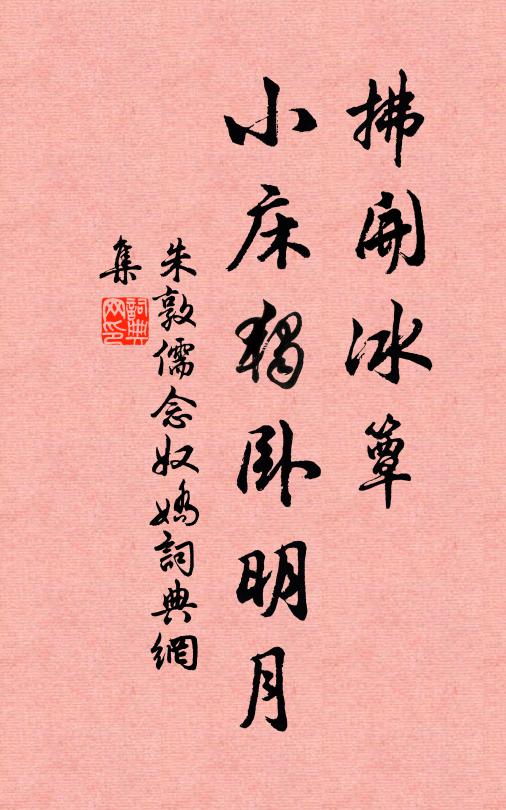 拂開冰簟
小床獨卧明月
朱敦儒念奴嬌詞典網
集
詞典
网印